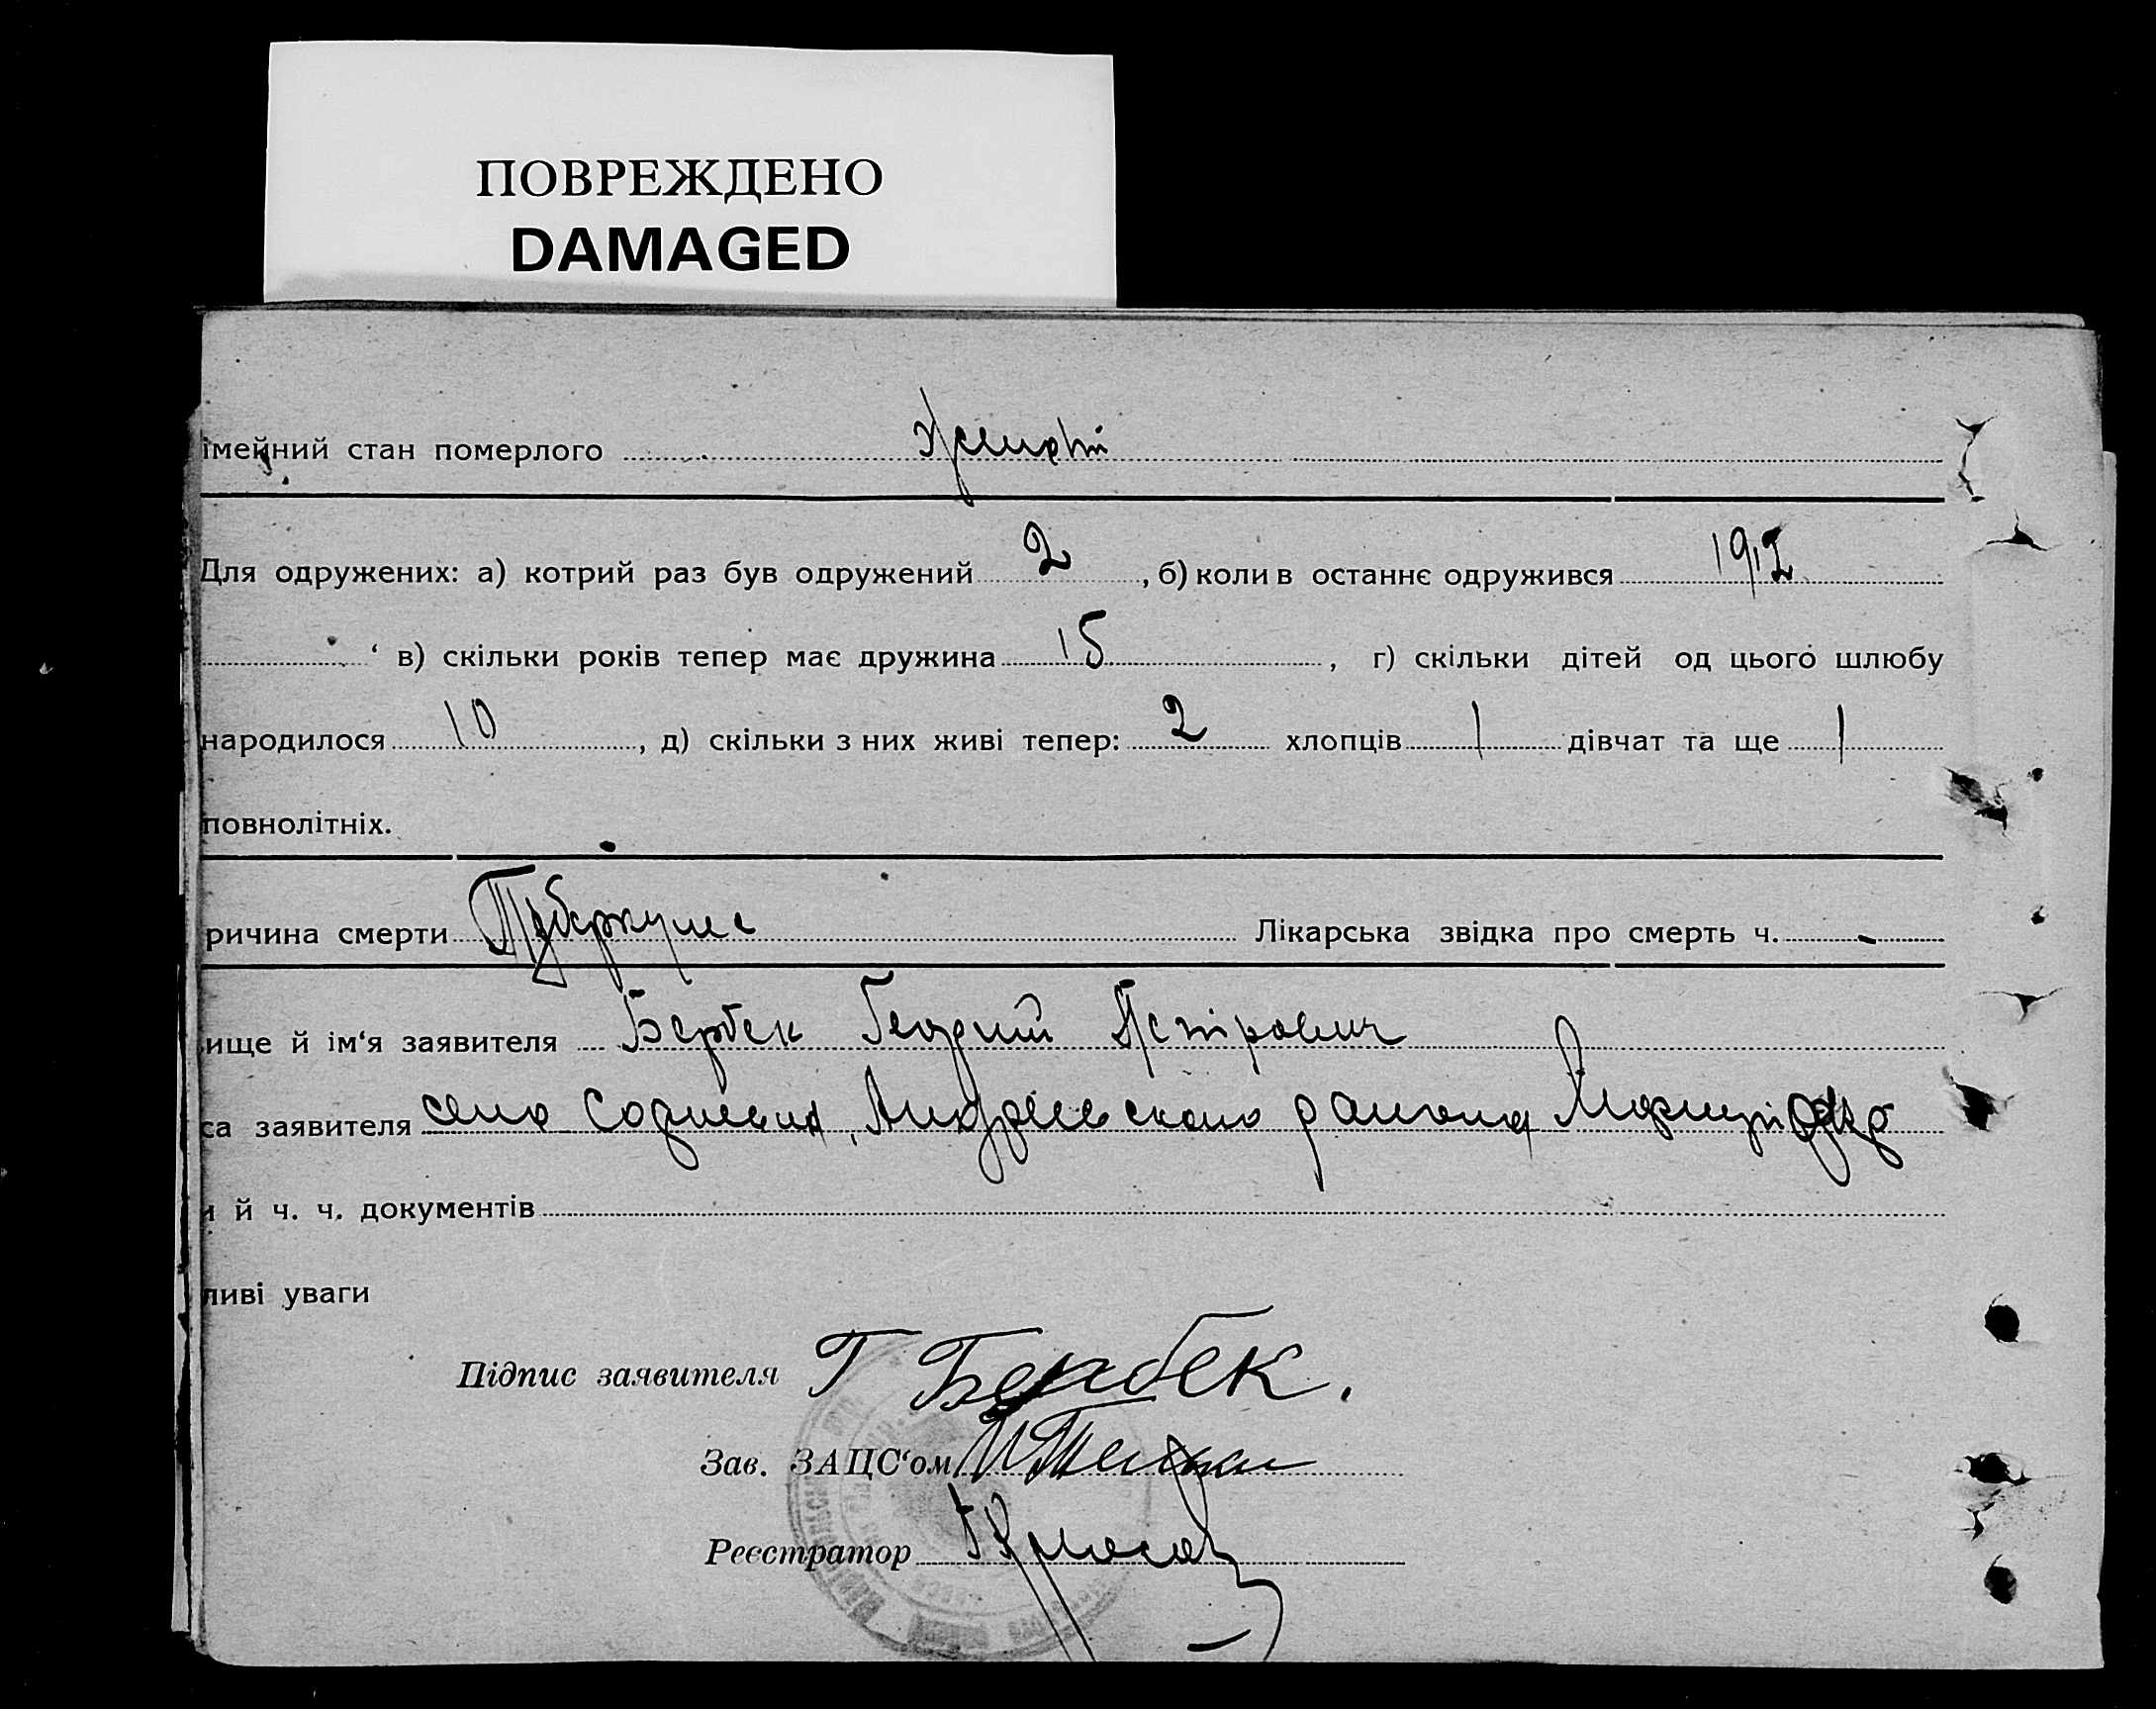 ПОВРЕЖДЕНО
DAMAGED
імейний стан померлого
Для одружених: а) котрий раз був одружений 2, б) коли в останнє одружився 1912
в) скільки років тепер має дружина 15, г) скільки дітей од цього шлюбу
народилося 10, д) скільки з них живі тепер: 2 хлопців 1 дівчат та ще 1
повнолітніх.
ричина смерти Туберкулез Лікарська звідка про смерть ч. -
ище й ім'я заявителя Бербек Георгий Петрович
са заявителя село Андріевского района
й ч. ч. документів
ливі уваги
Підпис заявителя Г Бербек.
Зав. ЗАЦС'ом
Реєстратор